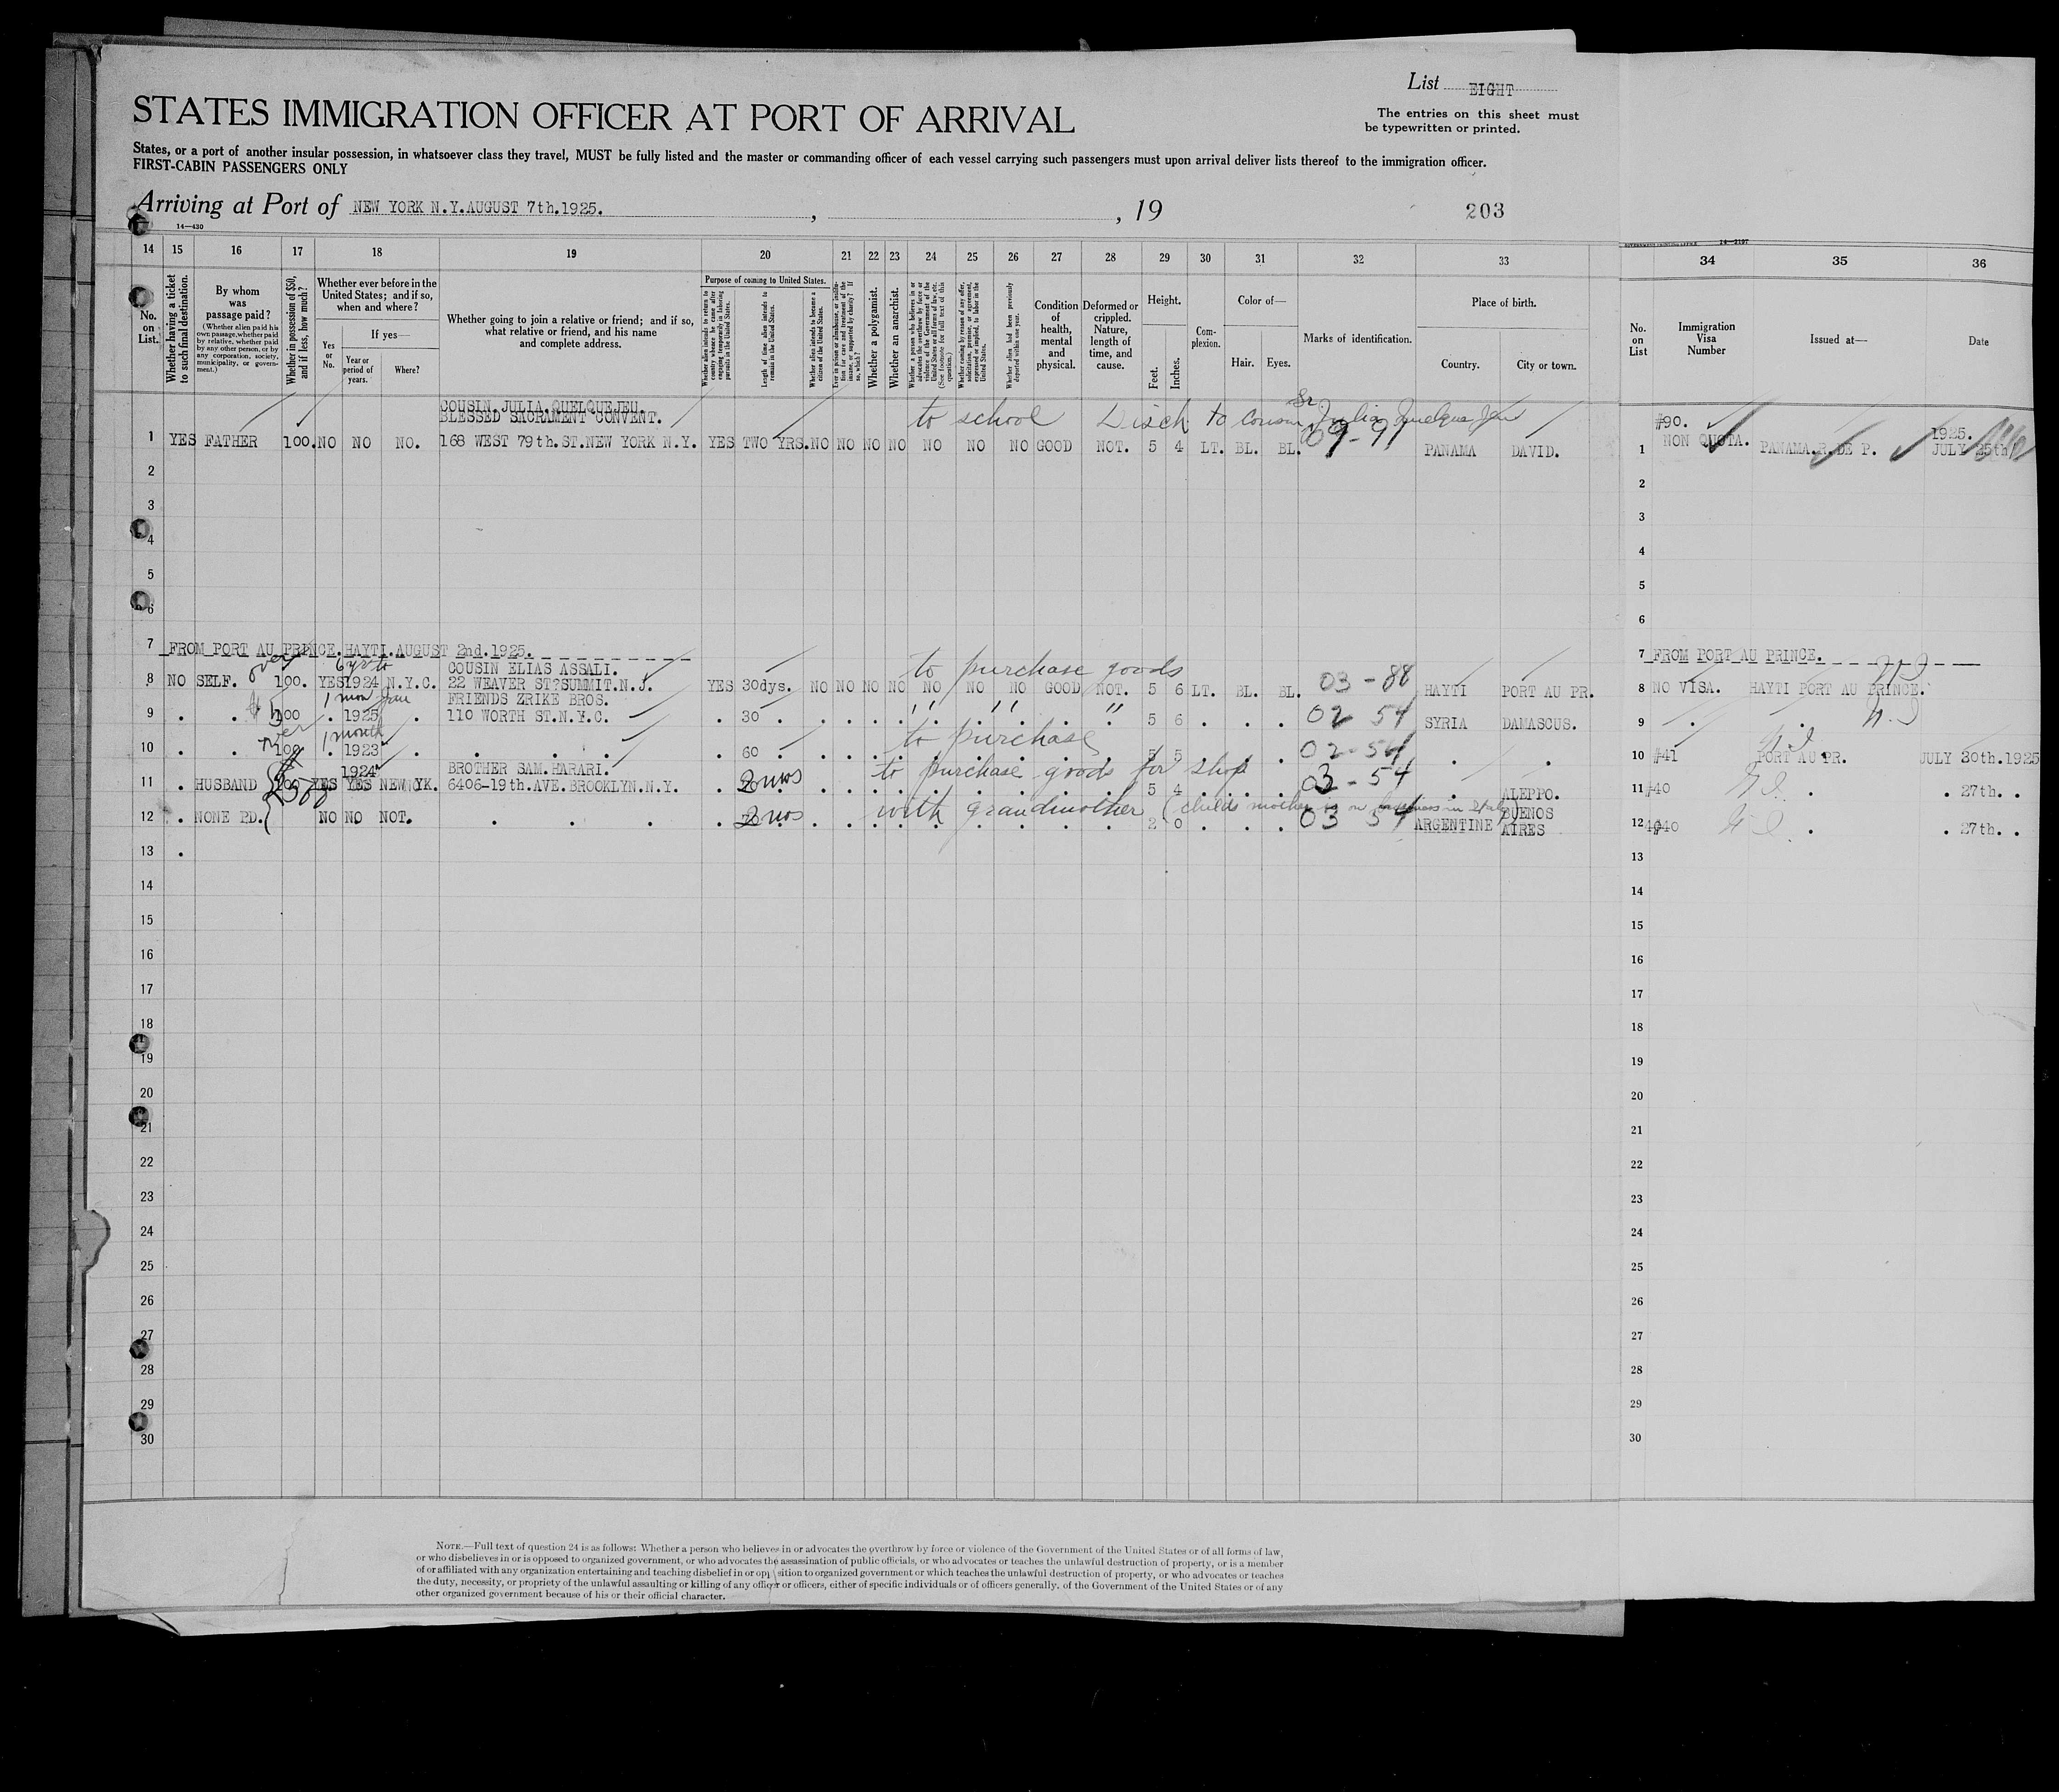 List EIGHT
STATES IMMIGRATION OFFICER AT PORT OF ARRIVAL
The entries on this sheet must
be typewritten or printed.
States, or a port of another insular possession, in whatsoever class they travel, MUST be fully listed and the master or commanding officer of each vessel carrying such passengers must upon arrival deliver lists thereof to the immigration officer.
FIRST-CABIN PASSENGERS ONLY
Arriving at Port of NEW YORK N.Y.AUGUST 7th.1925. , , 19
203
14—430
14 15 16 17 18 19 20 21 22 23 24 25 26 27 28 29 30 31 32 33 34 35 36
No. on List.
Whether having a ticket to such final destination.
By whom was passage paid?
(Whether alien paid his own passage, whether paid by relative, whether paid by any other person, or by any corporation, society, municipality, or government.)
Whether in possession of $50, and if less, how much?
Whether ever before in the United States; and if so, when and where?
Yes or No.
If yes—
Year or period of years.
Where?
Whether going to join a relative or friend; and if so, what relative or friend, and his name and complete address.
Purpose of coming to United States.
Whether alien intends to return to country whence he came after engaging temporarily in laboring pursuits in the United States.
Length of time alien intends to remain in the United States.
Whether alien intends to become a citizen of the United States.
Ever in prison or almshouse, or institution for care and treatment of the insane, or supported by charity? If so, which?
Whether a polygamist.
Whether an anarchist.
Whether a person who believes in or advocates the overthrow by force or violence of the Government of the United States or all forms of law, etc. (See footnote for full text of this question.)
Whether coming by reason of any offer, solicitation, promise, or agreement, expressed or implied, to labor in the United States.
Whether alien had been previously deported within one year.
Condition of health, mental and physical.
Deformed or crippled. Nature, length of time, and cause.
Height.
Feet. Inches.
Complexion.
Color of—
Hair. Eyes.
Marks of identification.
Place of birth.
Country. City or town.
No. on List
Immigration Visa Number
Issued at—
Date
COUSIN JULIA QUELQUEJEU.
BLESSED SACRAMENT CONVENT.
to school Disch to cousin Sr Julia Quelquejeu
1 YES FATHER 100. NO NO NO. 168 WEST 79th.ST.NEW YORK N.Y. YES TWO YRS. NO NO NO NO NO NO NO GOOD NOT. 5 4 LT. BL. BL. 09-91 PANAMA DAVID. 1 #90. NON QUOTA. PANAMA.R.DE P. 1925. JULY 25th
2 2
3 3
4 4
5 5
6 6
7 FROM PORT AU PRINCE.HAYTI.AUGUST 2nd.1925. 7 FROM PORT AU PRINCE.
over COUSIN ELIAS ASSALI. to purchase goods
8 NO SELF. 100. YES 1924 N.Y.C. 22 WEAVER ST?SUMMIT.N.J. YES 30dys. NO NO NO NO NO NO NO GOOD NOT. 5 6 LT. BL. BL. 03-88 HAYTI PORT AU PR. 8 NO VISA. HAYTI PORT AU PRINCE.
1 mon FRIENDS ZRIKE BROS.
9 . . . 1925 . 110 WORTH ST.N.Y.C. . 30 . . . . " " " 5 6 . . . 02 54 SYRIA DAMASCUS. 9 . .
over 1 month to purchase
10 . . 100 . 1923 . . . . . 60 . . . . 5 5 . . . 02-54 . . 10 #41 PORT AU PR. JULY 30th.1925
1924 BROTHER SAM.HARARI. to purchase goods for shop
11 . HUSBAND YES YES NEW YK. 6406-19th.AVE.BROOKLYN.N.Y. . 2 mos . . . . 5 4 . . . 03-54 . ALEPPO. 11 #40 . . 27th. .
with grandmother (childs mother is on business in Italy)
12 . NONE PD. NO NO NOT. . . . . 2 mos . . . . 2 0 . . . 03 54 ARGENTINE BUENOS AIRES 12 #40 . . 27th. .
13 . 13
14 14
15 15
16 16
17 17
18 18
19 19
20 20
21 21
22 22
23 23
24 24
25 25
26 26
27 27
28 28
29 29
30 30
NOTE.—Full text of question 24 is as follows: Whether a person who believes in or advocates the overthrow by force or violence of the Government of the United States or of all forms of law,
or who disbelieves in or is opposed to organized government, or who advocates the assassination of public officials, or who advocates or teaches the unlawful destruction of property, or is a member
of or affiliated with any organization entertaining and teaching disbelief in or opposition to organized government or which teaches the unlawful destruction of property, or who advocates or teaches
the duty, necessity, or propriety of the unlawful assaulting or killing of any officer or officers, either of specific individuals or of officers generally, of the Government of the United States or of any
other organized government because of his or their official character.